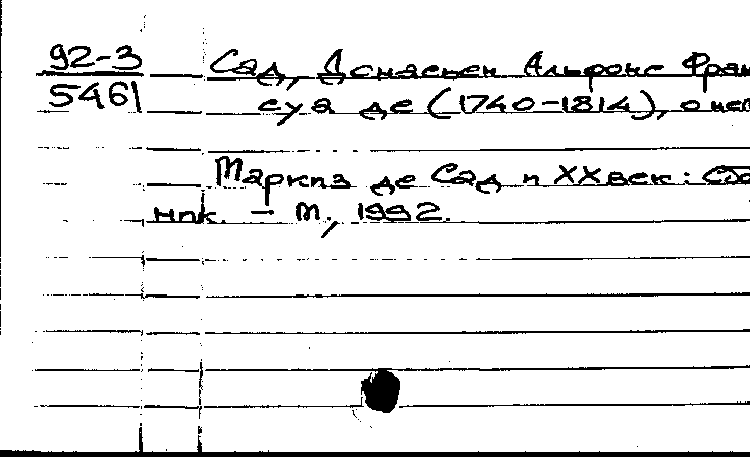 92-3
5461
Сад, Донасьен Альфонс Фран
суа де (1740-1814), о нем
Маркиз де Сад и XX век: Сбо
ник. – М., 1992.